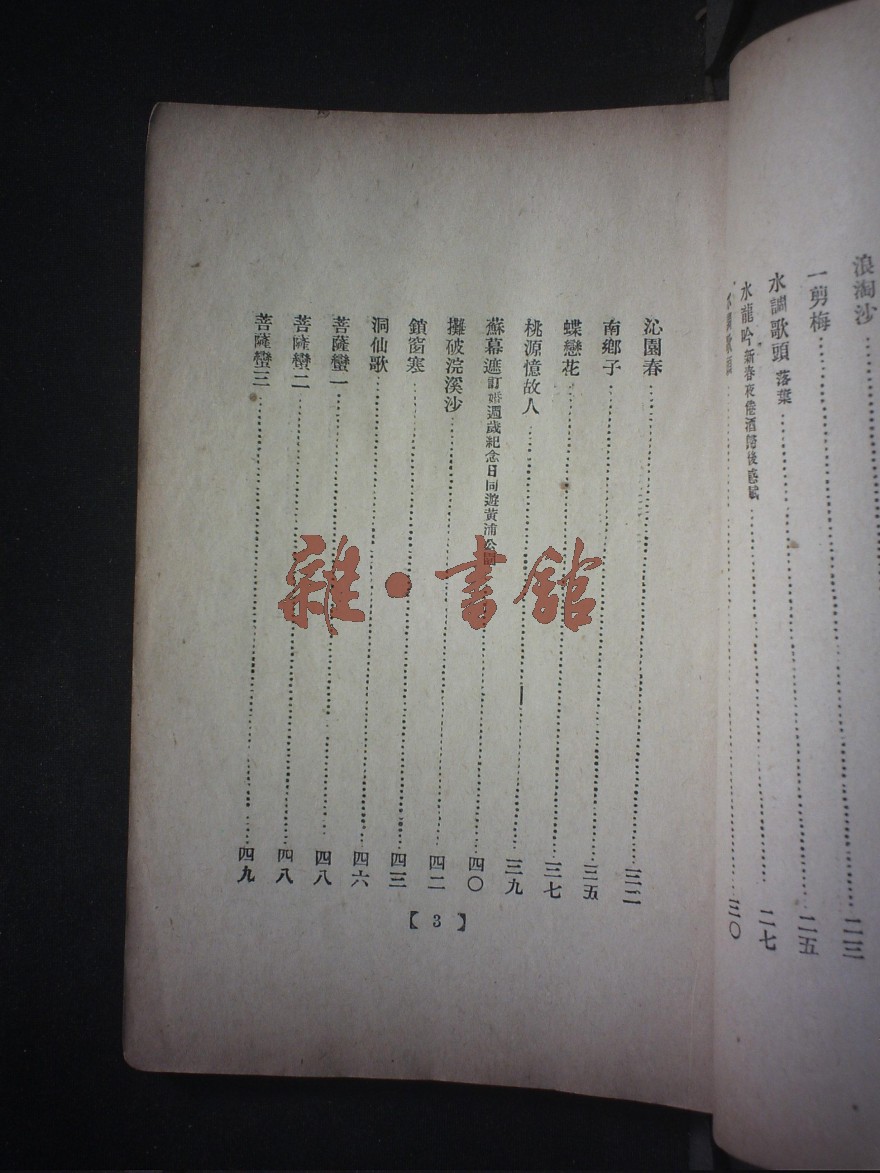 浪淘沙………二三
一剪梅………二五
水調歌頭 落葉………二七
水龍吟 新春夜倦酒歸後感賦………三〇
沁園春………三二
南鄉子………三五
蝶戀花………三七
桃源憶故人………三九
蘇幕遮 訂婚週歲紀念日同遊黃浦公園………四〇
攤破浣溪沙………四二
鎖窗寒………四三
洞仙歌………四六
菩薩蠻一………四八
菩薩蠻二………四八
菩薩蠻三………四九
【3】
雜·書館